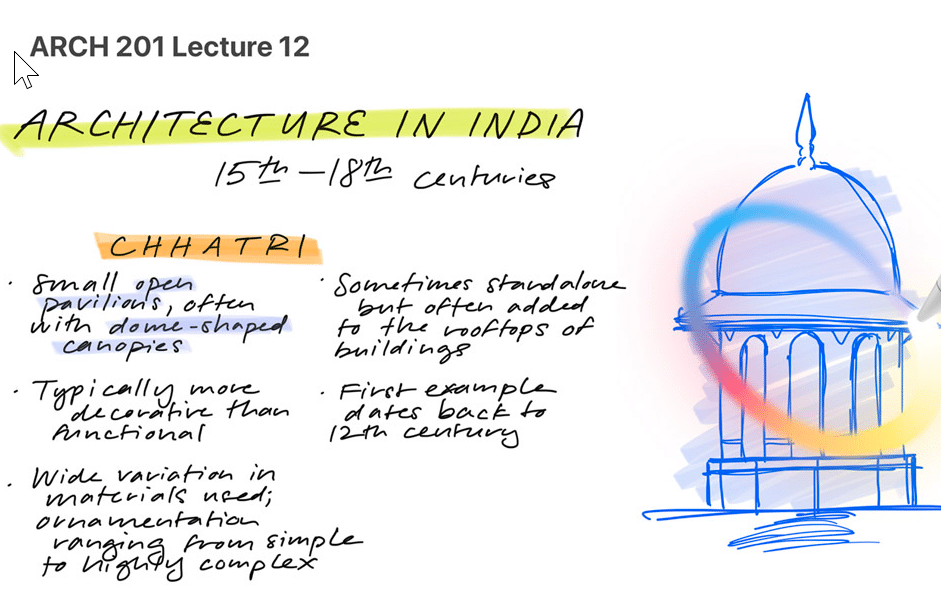 ARCH 201 Lecture 12
ARCHITECTURE IN INDIA
15th – 18th centuries
CHHATRI
· Small open
pavilions, often
with dome-shaped
canopies
· Typically more
decorative than
functional
· Wide variation in
materials used;
ornamentation
ranging from simple
to highly complex
· Sometimes standalone
but often added
to the rooftops of
buildings
· First example
dates back to
12th century